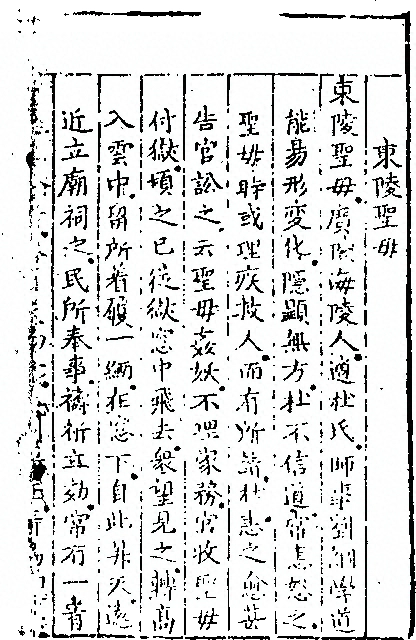 東陵聖母
東陵聖母廣陵海陵人適杜氏師事劉綱學道
能易形變化隱顯無方杜不信道常恚怒之
聖母時或理疾救人而有所詣杜恚之愈甚
告官訟之云聖母姦妖不理家務官收聖母
付獄頃之已從獄窓中飛去衆望見之轉髙
入雲中留所着履一緉在窓下自此昇天遠
近立廟祠之民所奉事禱祈立効常有一青